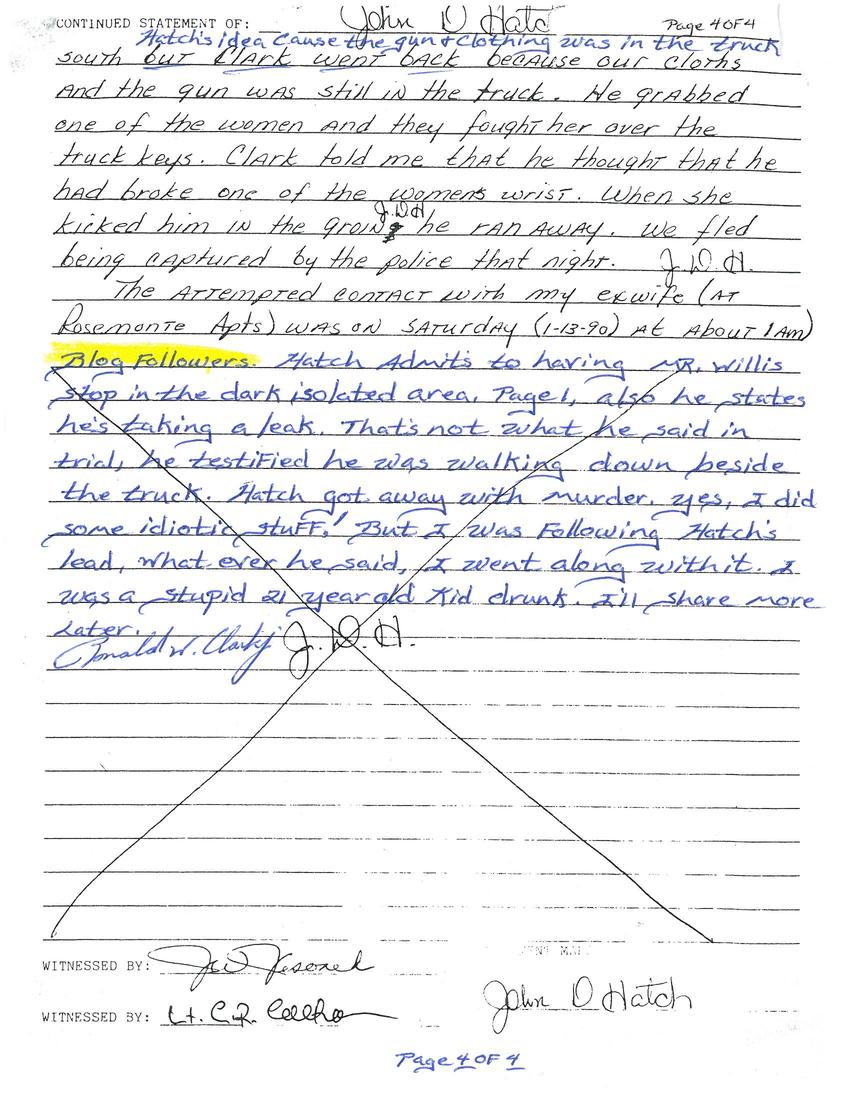 CONTINUED STATEMENT OF: John D Hatch Page 4 OF 4
Hatch's idea cause the gun & clothing was in the truck
south but Clark went back because our cloths
And the gun was still in the truck. He grabbed
one of the women and they fought her over the
truck keys. Clark told me that he thought that he
had broke one of the womens wrist. When she
J.D.H
kicked him in the groin he ran away. We fled
being captured by the police that night. J.D.H.
The attempted contact with my exwife (at
Rosemonte Apts) was on Saturday (1-13-90) at about 1 am)
Blog Followers. Hatch Admits to having MR. Willis
stop in the dark isolated area. Page 1, also he states
he's taking a leak. That's not what he said in
trial, he testified he was walking down beside
the truck. Hatch got away with murder. yes, I did
some idiotic stuff! But I was Following Hatch's
lead, what ever he said, I went along with it. I
was a stupid 21 year old Kid drunk. I'll share more
Later.
Ronald W. Clark Jr J.D.H.
WITNESSED BY:
WITNESSED BY: Lt. C.R.
John D Hatch
Page 4 OF 4